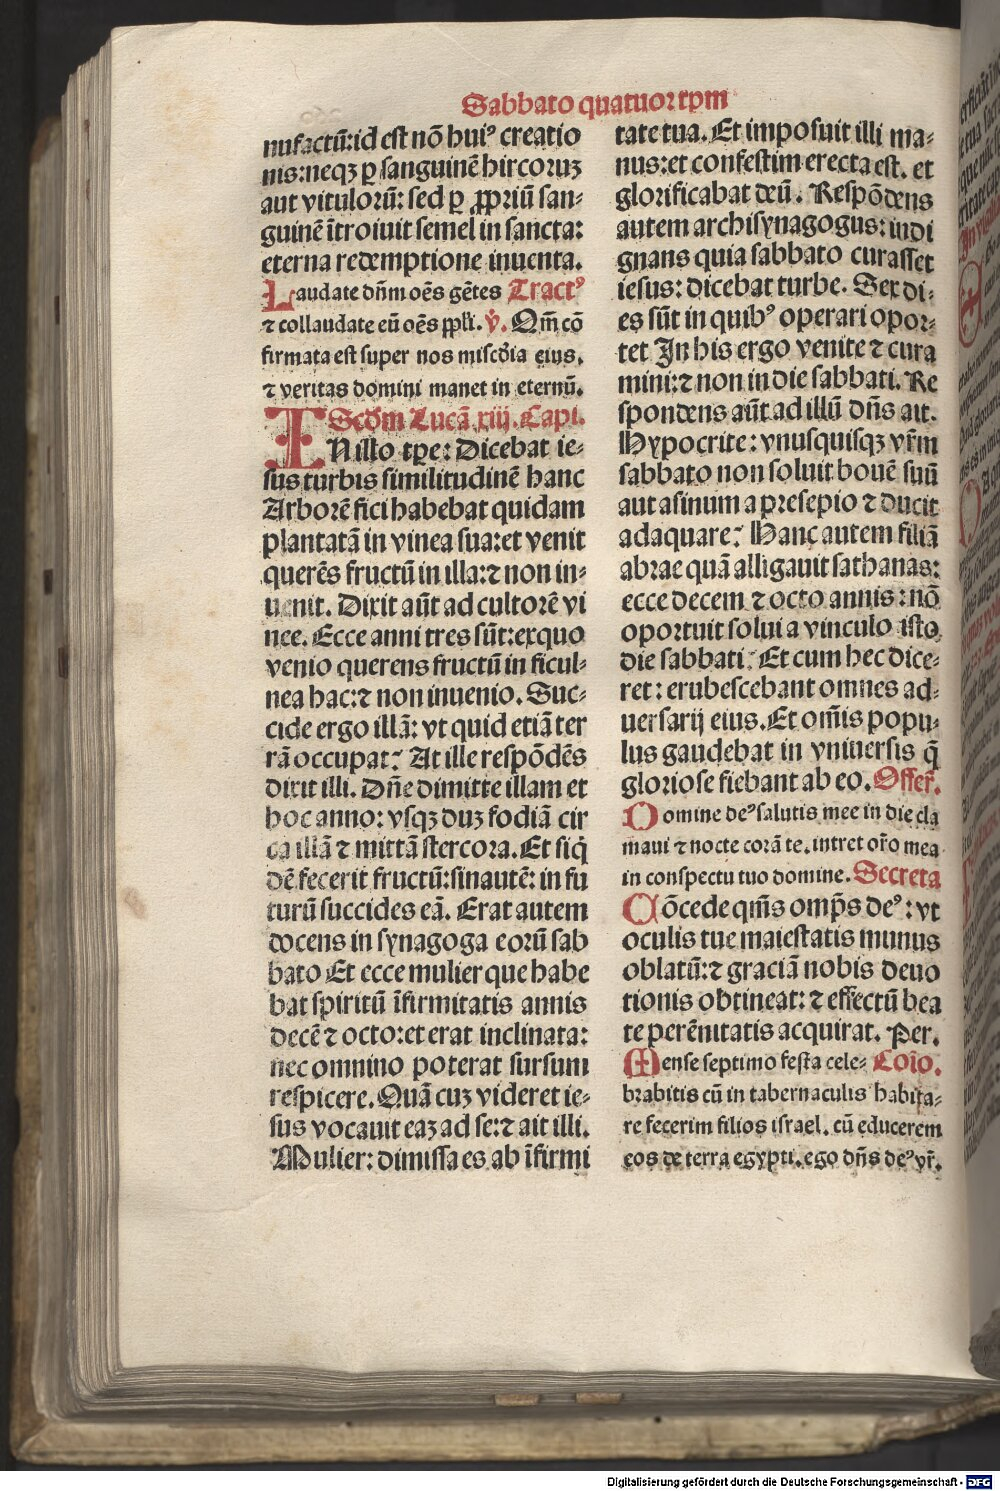 Sabbato quatuor tꝑm
nufactū:id est nō huiꝰ creatio
nis:neqꝫ ꝑ sanguinē hircoruꝫ
aut vitulorū: sed ꝑ ꝓpriū san⸗
guinē ītroiuit semel in sancta:
eterna redemptione inuenta.
Laudate dn̄m oēs gētes Tractꝰ
⁊ collaudate eū oēs ppl̄i. ℣. Qm̄ cō
firmata est super nos mīscd̄ia eius.
⁊ veritas domini manet in eternū.
Scd̄m Lucā xiij. Capi.
IN illo tꝑe: Dicebat ie⸗
sus turbis similitudinē hanc
Arborē fici habebat quidam
plantatā in vinea sua:et venit
querēs fructū in illa:⁊ non in⸗
uenit. Dixit aūt ad cultorē vi
nee. Ecce anni tres sūt:exquo
venio querens fructū in ficul⸗
nea hac:⁊ non inuenio. Suc⸗
cide ergo illā: vt quid etiā ter
rā occupat: At ille respōdēs
dixit illi. Dn̄e dimitte illam et
hoc anno: vsqꝫ duꝫ fodiā cir
ca illā ⁊ mittā stercora. Et siq̄
dē fecerit fructū:sinautē: in fu
turū succides eā. Erat autem
docens in synagoga eorū sab
bato Et ecce mulier que habe
bat spiritū īfirmitatis annis
decē ⁊ octo:et erat inclinata:
nec omnino poterat sursum
respicere. Quā cuꝫ videret ie⸗
sus vocauit eaꝫ ad se:⁊ ait illi.
Mulier: dimissa es ab īfirmi
tate tua. Et imposuit illi ma⸗
nus:et confestim erecta est. et
glorificabat deū. Respōdens
autem archisynagogus: indi
gnans quia sabbato curasset
iesus: dicebat turbe. Sex di⸗
es sūt in quibꝰ operari opor⸗
tet In his ergo venite ⁊ cura
mini:⁊ non in die sabbati. Re
spondens aūt ad illū dn̄s ait.
Hypocrite: vnusquisqꝫ vr̄m
sabbato non soluit bouē suū
aut asinum a presepio ⁊ ducit
adaquare: Hanc autem filiā
abrae quā alligauit sathanas:
ecce decem ⁊ octo annis: nō
oportuit solui a vinculo isto
die sabbati: Et cum hec dice⸗
ret: erubescebant omnes ad⸗
uersarij eius. Et om̄is popu⸗
lus gaudebat in vniuersis q̄
gloriose fiebant ab eo. Offer̄.
Domine deꝰ salutis mee in die cla
maui ⁊ nocte corā te. intret or̄o mea
in conspectu tuo domine. Secreta
Cōcede qm̄s omp̄s deꝰ: vt
oculis tue maiestatis munus
oblatū:⁊ graciā nobis deuo
tionis obtineat: ⁊ effectū bea
te perēnitatis acquirat. Per.
Mense septimo festa cele⸗ Coīo.
brabitis cū in tabernaculis habita⸗
re fecerim filios israel. cū educerem
eos de terra egypti. ego dn̄s deꝰ vr̄.
Digitalisierung gefördert durch die Deutsche Forschungsgemeinschaft - DFG